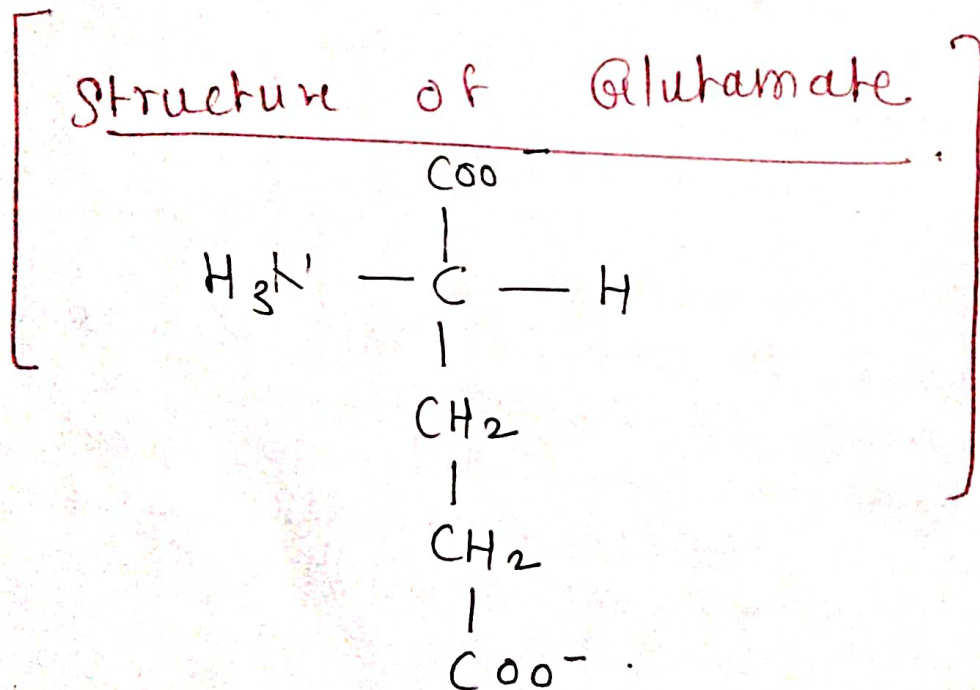 Structure of Glutamate.
COO⁻
H₃N⁺ — C — H
CH₂
CH₂
COO⁻.